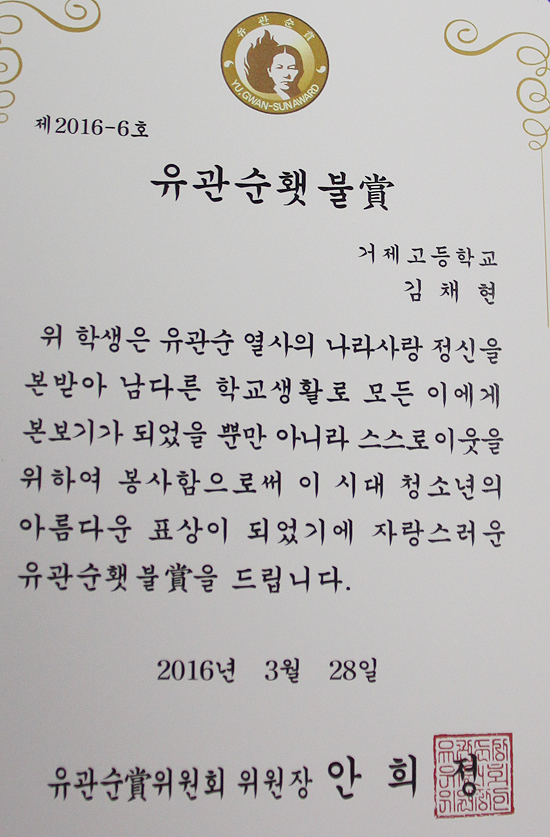 유관순賞
YU, GWAN-SUN AWARD
제2016-6호
유관순횃불賞
거제고등학교
김채현
위 학생은 유관순 열사의 나라사랑 정신을
본받아 남다른 학교생활로 모든 이에게
본보기가 되었을 뿐만 아니라 스스로이웃을
위하여 봉사함으로써 이 시대 청소년의
아름다운 표상이 되었기에 자랑스러운
유관순횃불賞을 드립니다.
2016년 3월 28일
유관순賞위원회 위원장 안 희 정